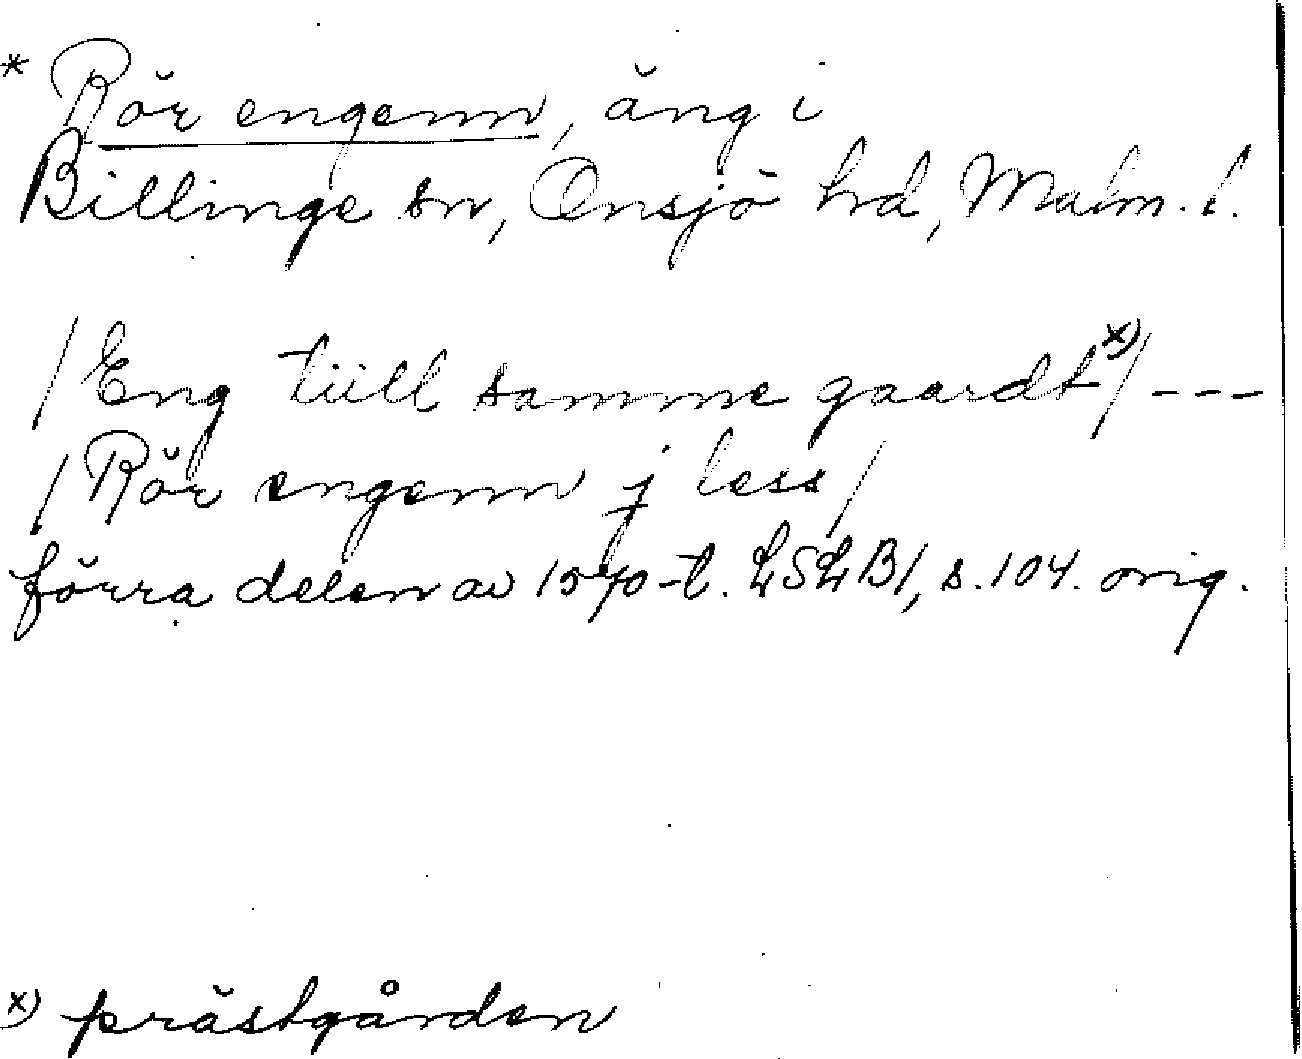 * Rör engenn, äng i
Billinge sn, Onsjö hd, Malm. l.
/Eng tiill samme gaardt x)/ ---
/Rör engenn j less/
förra delen av 1570-t. LSLB1, s. 104. orig.
x) prästgården